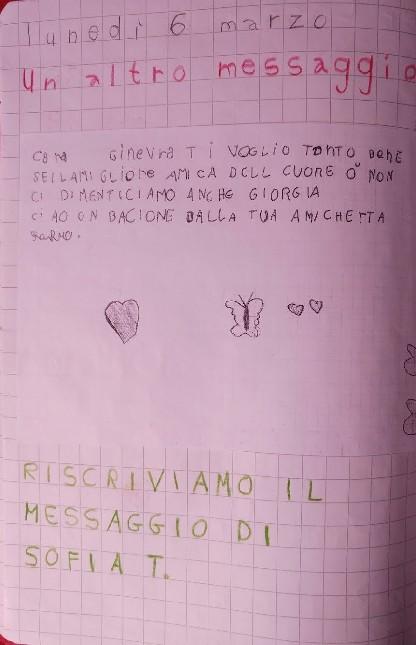 lunedì 6 marzo
Un altro messaggio
Ginevra TI VOGLIO TONTO
AMICA DELL CUORE O NON
CI DIMENTICIAMO ANCHE GIORGIA
CIAO UN BACIONE DALLA TUA AMICHETTA
RISCRIVIAMO IL
MESSAGGIO DI
SOFIA T.